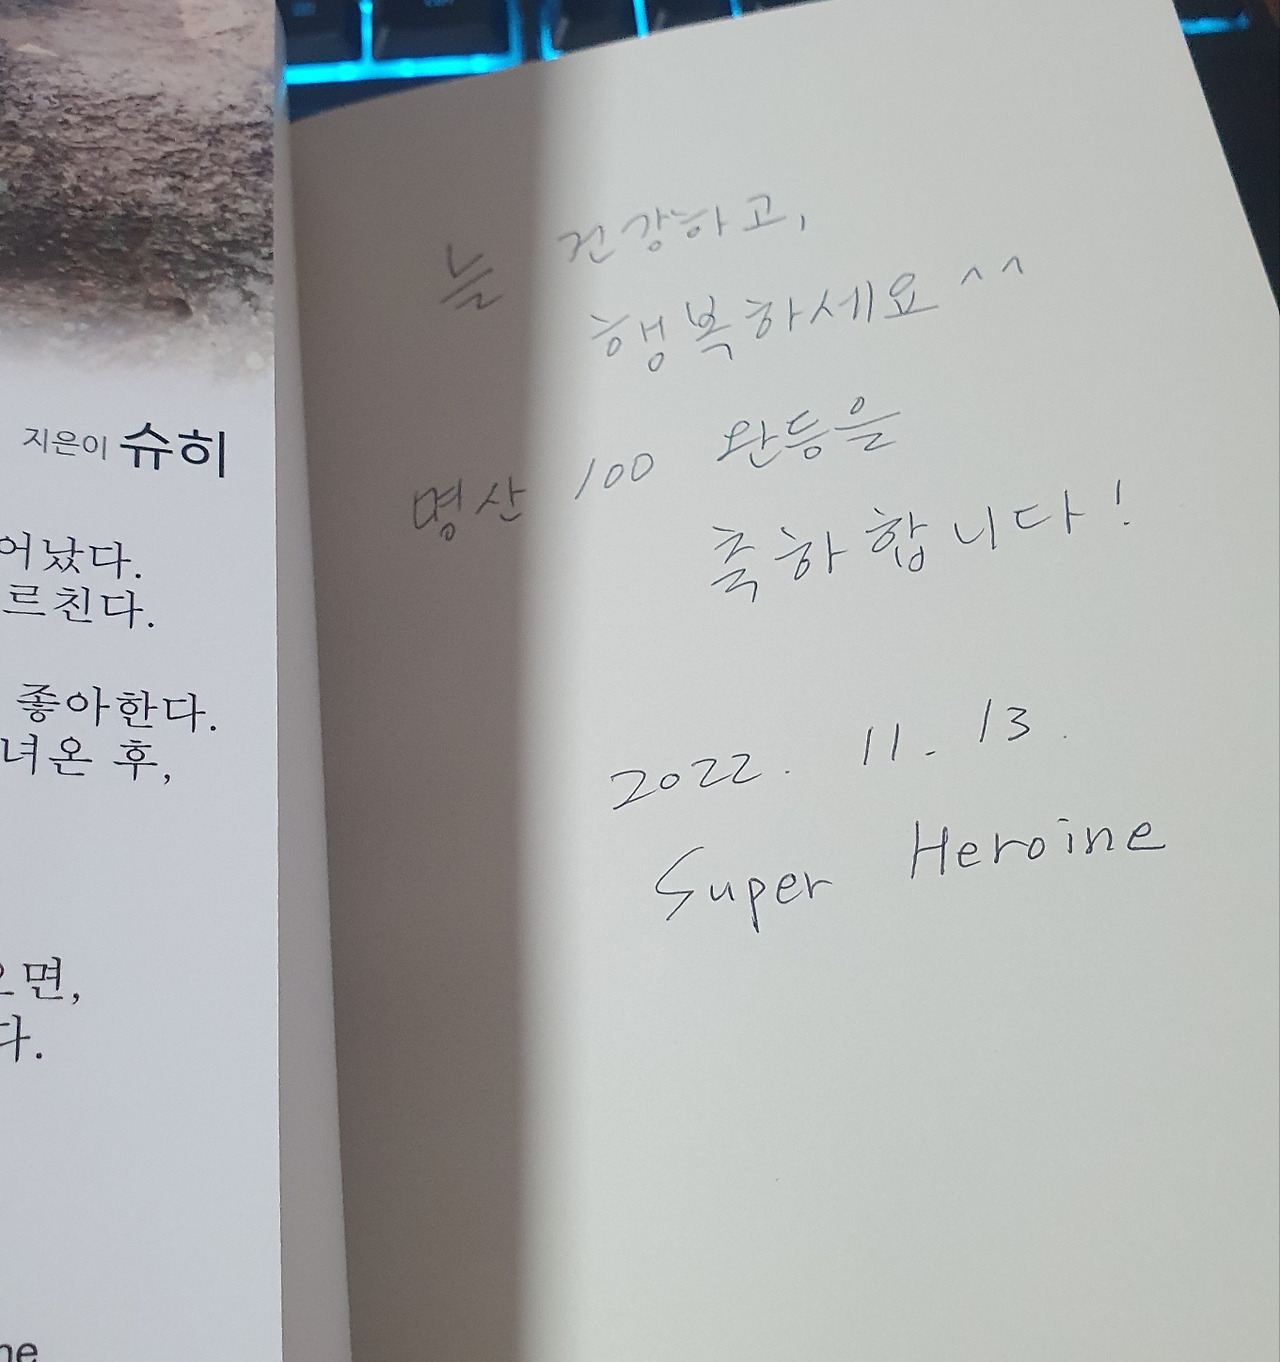 지은이 슈히
어났다.
르친다.
좋아한다.
녀온 후,
으면,
다.
ne
늘 건강하고,
행복하세요^^
명산 100 완등을
축하합니다!
2022. 11. 13.
Super Heroine